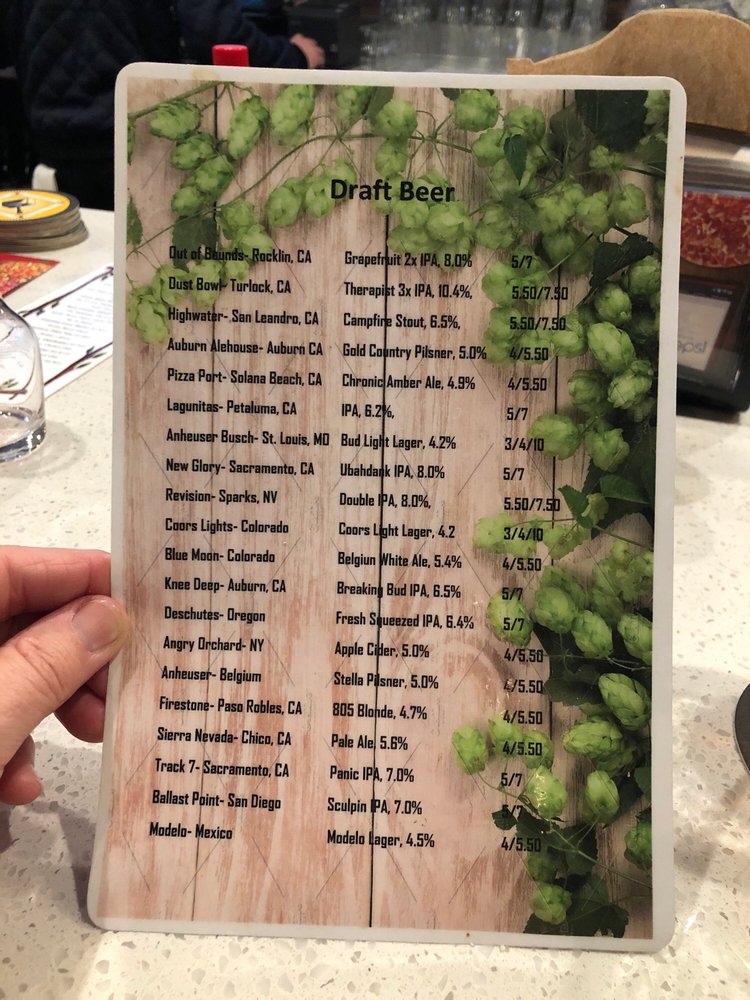 Draft Beer
Out of Bounds- Rocklin, CA Grapefruit 2x IPA, 8.0% 5/7
Dust Bowl- Turlock, CA Therapist 3x IPA, 10.4%, 5.50/7.50
Highwater- San Leandro, CA Campfire Stout, 6.5%, 5.50/7.50
Auburn Alehouse- Auburn CA Gold Country Pilsner, 5.0% 4/5.50
Pizza Port- Solana Beach, CA Chronic Amber Ale, 4.9% 4/5.50
Lagunitas- Petaluma, CA IPA, 6.2%, 5/7
Anheuser Busch- St. Louis, MO Bud Light Lager, 4.2% 3/4/10
New Glory- Sacramento, CA Ubahdank IPA, 8.0% 5/7
Revision- Sparks, NV Double IPA, 8.0%, 5.50/7.50
Coors Lights- Colorado Coors Light Lager, 4.2 3/4/10
Blue Moon- Colorado Belgiun White Ale, 5.4% 4/5.50
Knee Deep- Auburn, CA Breaking Bud IPA, 6.5% 5/7
Deschutes- Oregon Fresh Squeezed IPA, 6.4% 5/7
Angry Orchard- NY Apple Cider, 5.0% 4/5.50
Anheuser- Belgium Stella Pilsner, 5.0% 4/5.50
Firestone- Paso Robles, CA 805 Blonde, 4.7% 4/5.50
Sierra Nevada- Chico, CA Pale Ale, 5.6% 4/5.50
Track 7- Sacramento, CA Panic IPA, 7.0% 5/7
Ballast Point- San Diego Sculpin IPA, 7.0% 5/7
Modelo- Mexico Modelo Lager, 4.5% 4/5.50